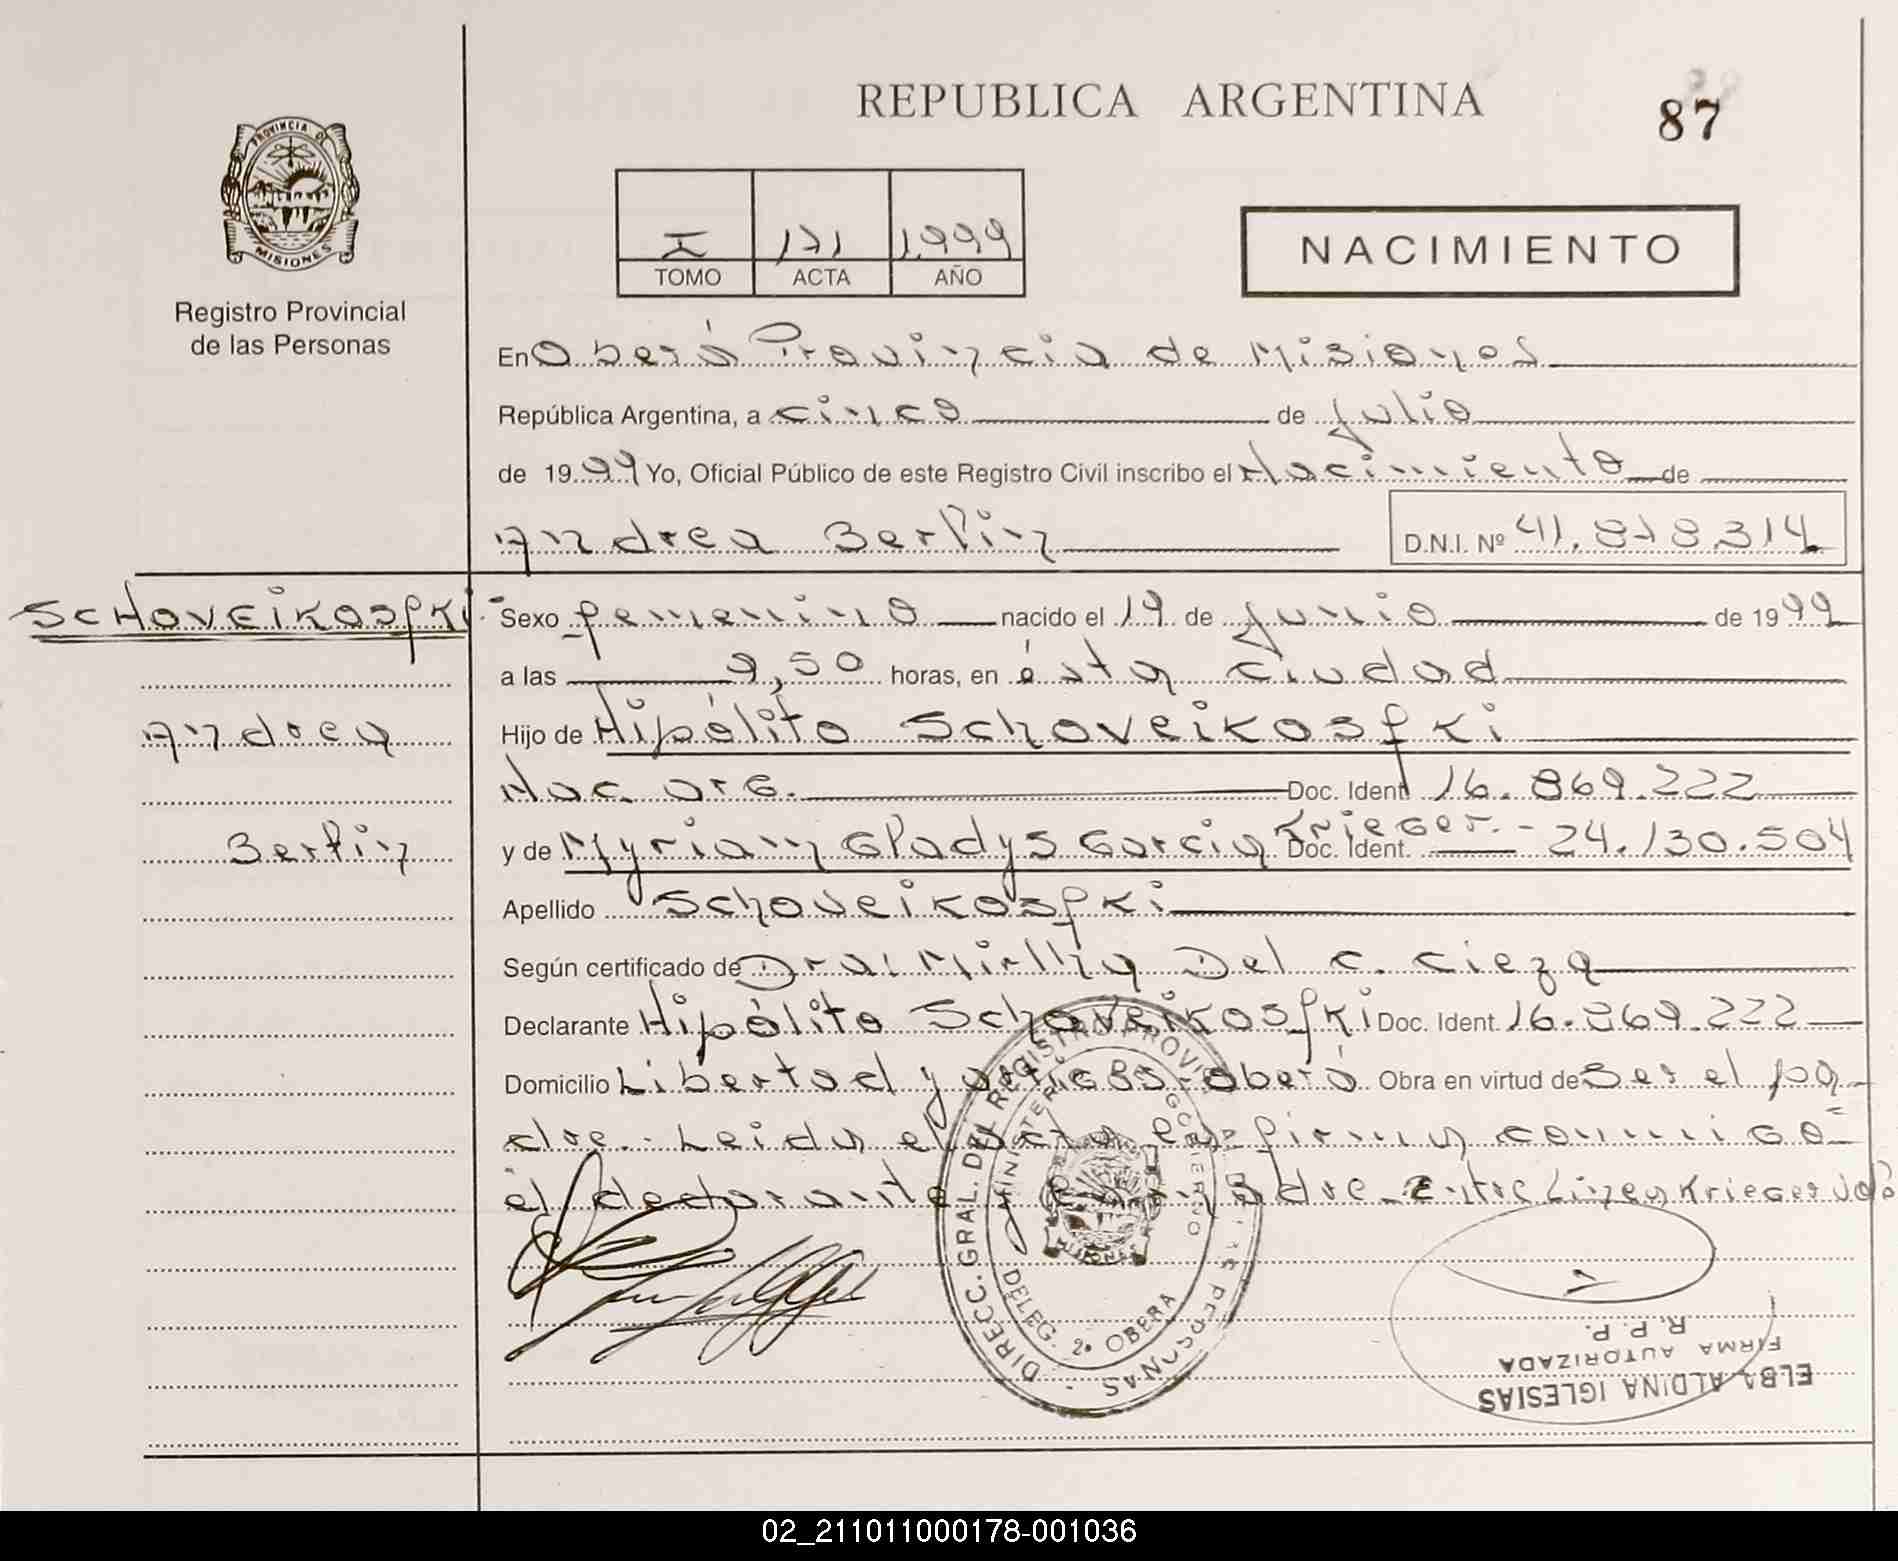 REPUBLICA ARGENTINA
87
PROVINCIA DE
MISIONES
Registro Provincial
de las Personas
I 171 1.999
TOMO ACTA AÑO
NACIMIENTO
En Oberá Provincia de Misiones
República Argentina, a cinco de Julio
de 1999 Yo, Oficial Público de este Registro Civil inscribo el Nacimiento de
Andrea Berlin D.N.I. Nº 41.878.314
SCHOVEIKOSfKi Sexo femenino nacido el 19 de Junio de 1999
a las 9,50 horas, en ésta ciudad
Andrea Hijo de Hipólito Schoveikosfki
Nac. Arg. Doc. Ident. 16.869.222
Krieger.-
Berlin y de Myriam Gladys Garcia Doc. Ident. 24.130.504
Apellido Schoveikosfki
Según certificado de Dra. Del C. Cieza
Declarante Hipólito Schoveikosfki Doc. Ident. 16.869.222
Domicilio Libertad y Oberá Obra en virtud de ser el pa-
dre.- Leida el acta firman conmigo
el declarante y la madre Entre Lineas Krieger Vale
DIRECC. GRAL. DEL REGISTRO PROVINCIAL DE LAS PERSONAS
MINISTERIO DE GOBIERNO
MISIONES
DELEG. 2a OBERA
ELBA ALDINA IGLESIAS
FIRMA AUTORIZADA
R. P. P.
02_211011000178-001036